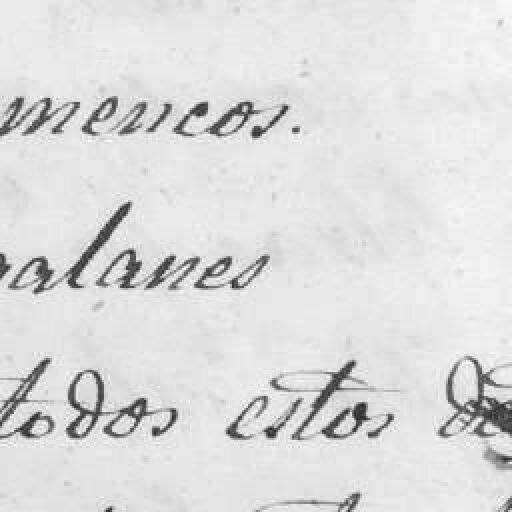 mericos.
galanes
todos estos